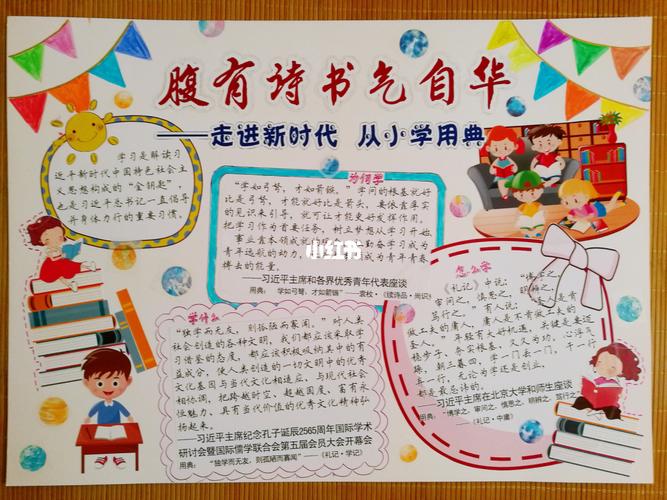 腹有诗书气自华
——走进新时代 从小学用典
学习是解读习
近平新时代中国特色社会主
义思想构成的“金钥匙”,
也是习近平总书记一直倡导
并身体力行的重要习惯。
为何学
“学如弓弩,才如箭镞。”学问的根基就好
比是弓弩,才能就好比是箭头,要依靠厚实
的见识来引导,就可以让才能更好发挥作用。
把学习作为首要任务,树立梦想从学习开始
事业靠本领成就
勤奋学习成为
青春远航的动力,
成为青年青春
搏击的能量。
——习近平主席和各界优秀青年代表座谈
用典: 学如弓弩,才如箭镞——袁枚·《续诗品·尚识》
小红书
学什么
“独学而无友,则孤陋而寡闻。”对人类
社会创造的各种文明,我们都应该采取学
习借鉴的态度,都应该积极吸纳其中的有
益成分,使人类创造的一切文明中的优秀
文化基因与当代文化相适应、与现代社会
相协调,把跨越时空、超越国度、富有永
恒魅力、具有当代价值的优秀文化精神弘
扬起来。
——习近平主席纪念孔子诞辰2565周年国际学术
研讨会暨国际儒学联合会第五届会员大会开幕会
用典: “独学而无友,则孤陋而寡闻”——《礼记·学记》
怎么学
《礼记》中说:“博学之,
审问之,慎思之,明辨之,
笃行之。”有人说:
人是肯
做工夫的庸人,庸人是不肯做工夫的
圣人。”年轻有大好机遇,关键是要迈
稳步子、夯实根基、久久为功。心浮气
躁,朝三暮四,学一门丢一门,干一行
弃一行,无论为学还是创业,
都是最忌讳的。
——习近平主席在北京大学和师生座谈
用典: “博学之,审问之,慎思之,明辨之,笃行之”
——《礼记·中庸》